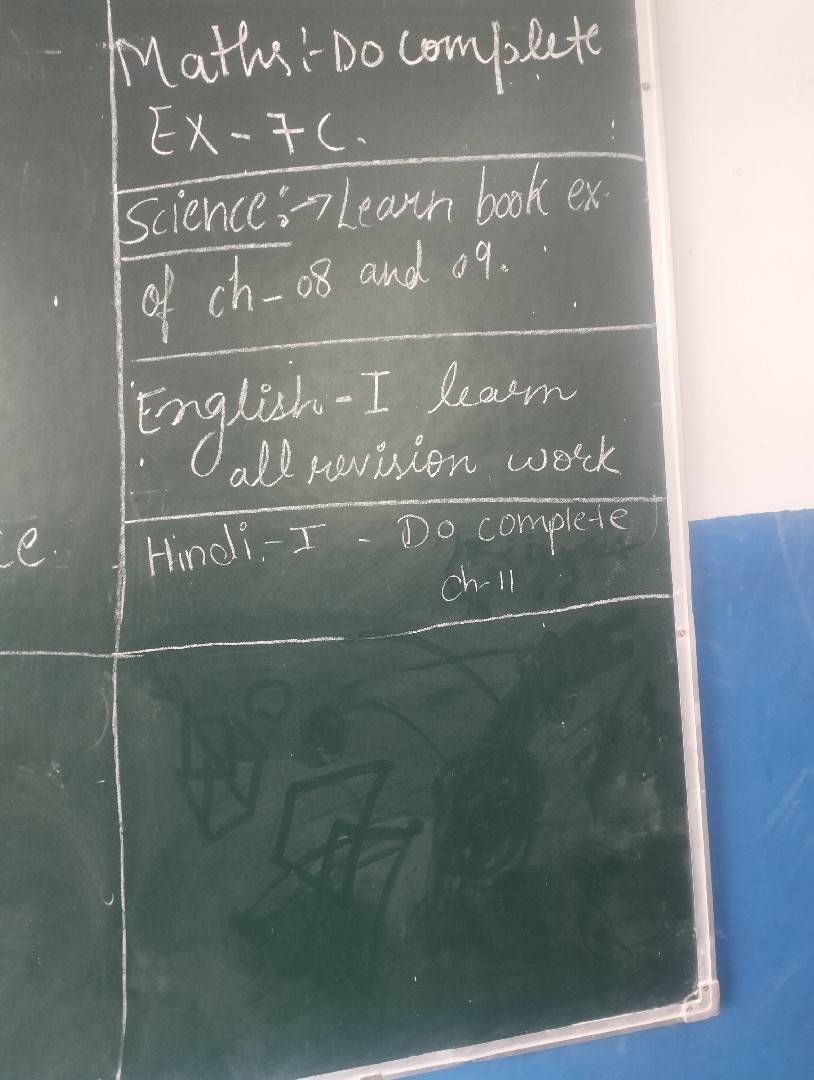 Maths:- Do complete
Ex - 7C.
Science:→ Learn book ex.
of ch-08 and 09.
English-I learn
all revision work
ce.
Hindi-I - Do complete
ch-11